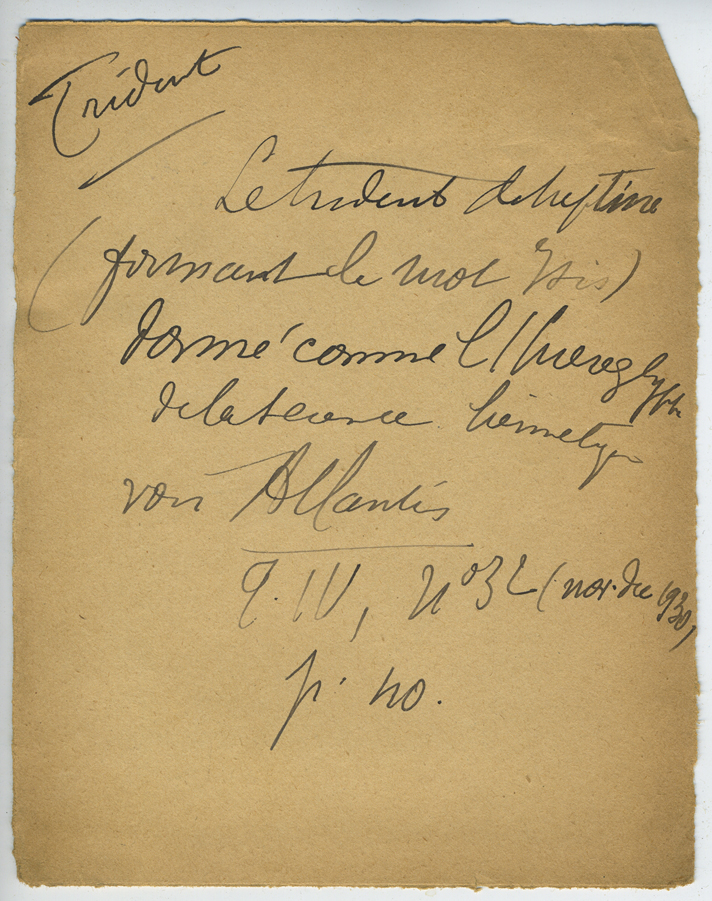 Trident
Le trident de Neptune
(formant le mot Isis)
donné comme l'hieroglyphe
de la science hermetique
voir Atlantis
T. IV, No 32 (nov. dec 1930,
p. 40.